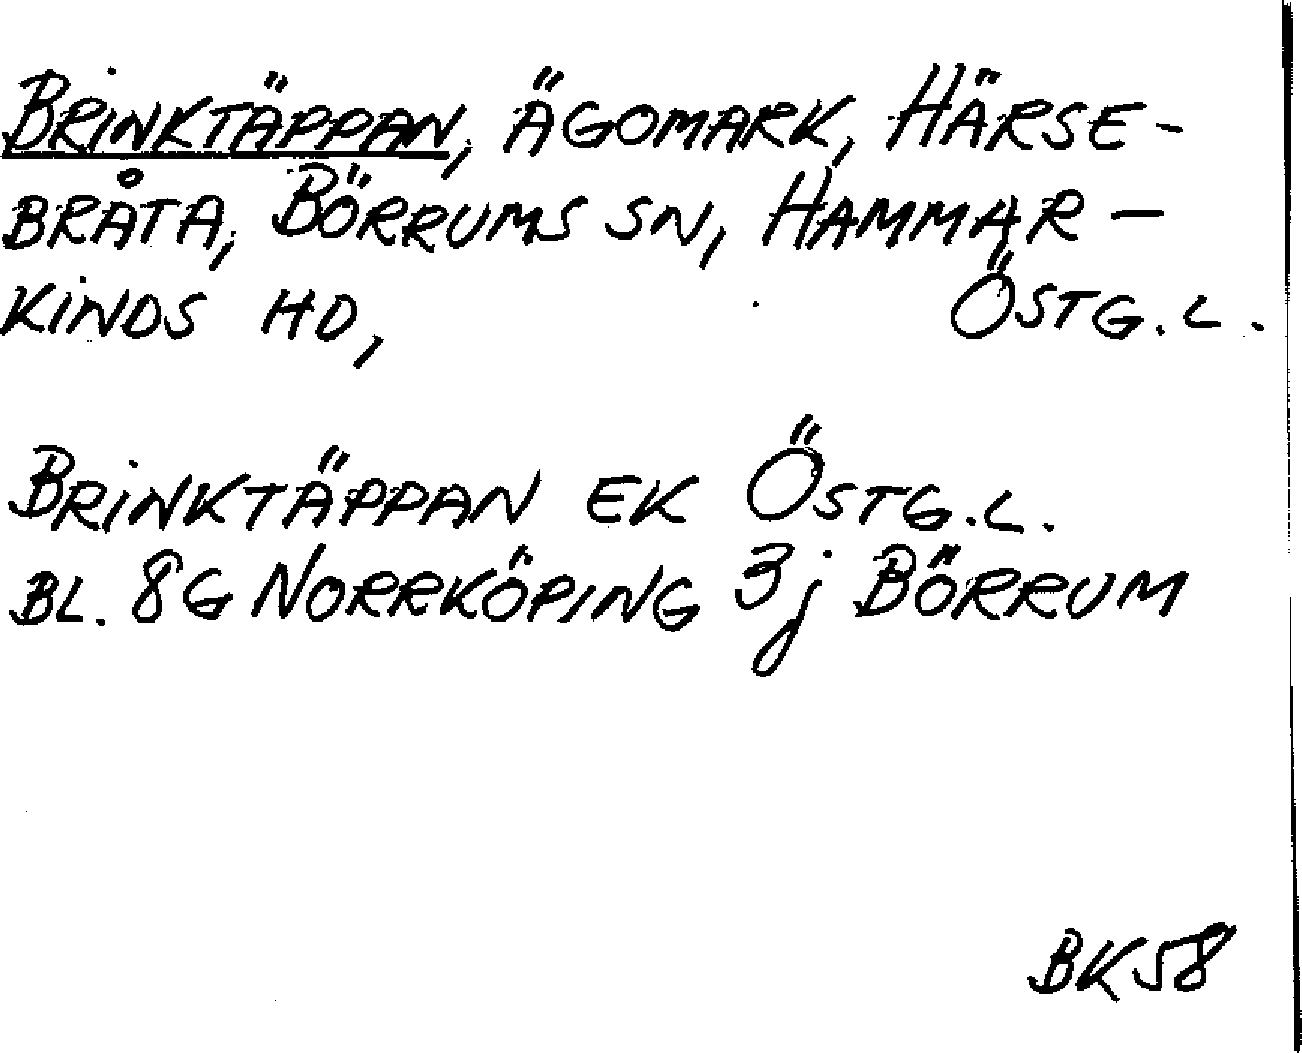 BRINKTÄPPAN, ÄGOMARK, HÄRSE-
BRÅTA, BÖRRUMS SN, HAMMAR-
KINDS HD, ÖSTG.L.
BRINKTÄPPAN EK ÖSTG.L.
BL. 8G NORRKÖPING 3j BÖRRUM
BK58